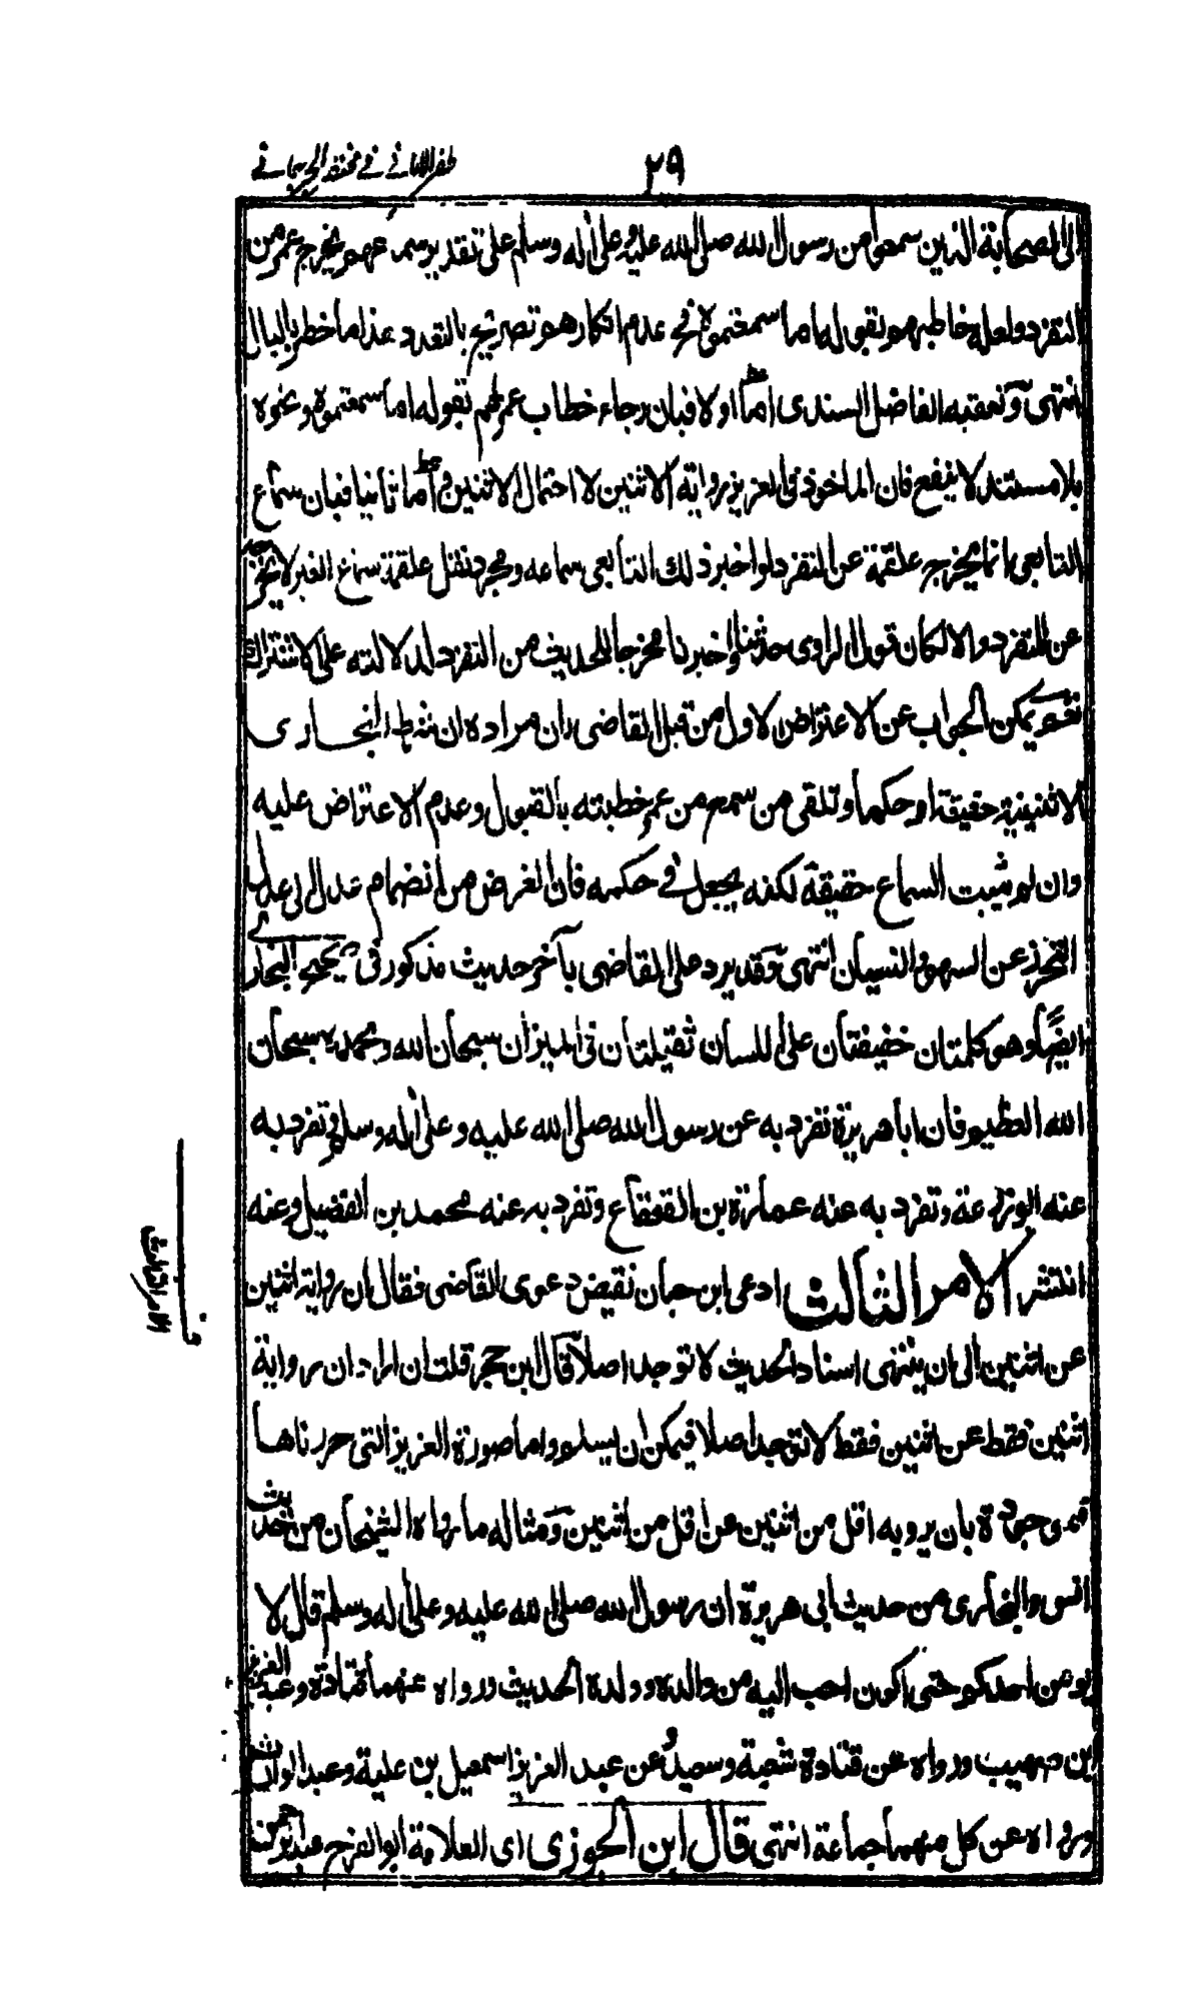 ٢٩
ظفر الاماني في مختصر الجرجاني
الى الصحابة الذين سمعوا من رسول الله صلى الله عليه وعلى اله وسلم على تقدير سماعهم يخرج عمر من
التفرد ولعله خاطبهم بقوله اما سمعتموه فح عدم انكارهم تصريح بالتعدد هذا ما خطر بالبال
انتهى وتعقبه الفاضل السندى اما اولا فبان رجاء خطاب عمر لهم بقوله اما سمعتموه ونحوه
بلا مستند لا ينفع فان الماخوذ فى العزيز رواية الاثنين لا احتمال الاثنين واما ثانيا فبان سماع
التابعى انما يخرج علقمة عن التفرد لو اخبر ذلك التابعى سماعه ومجرد نقل علقمة سماع الغير لا يخرجه
عن التفرد والا لكان قول الراوى حدثنا واخبرنا مخرجا للحديث من التفرد لدلالته على الاشتراك
نعم يمكن الجواب عن الاعتراض الاول من قبل القاضى بان مراده ان شرط البخارى
الاثنينية حقيقة او حكما وتلقى من سمع من عمر خطبته بالقبول وعدم الاعتراض عليه
وان لم يثبت السماع حقيقة لكنه يجعل فى حكمه فان الغرض من انضمام عدل الى عدل
التحرز عن السهو والنسيان انتهى وقد يرد على القاضى بآخر حديث مذكور فى صحيح البخارى
ايضا وهو كلمتان خفيفتان على اللسان ثقيلتان فى الميزان سبحان الله وبحمده سبحان
الله العظيم فان ابا هريرة تفرد به عن رسول الله صلى الله عليه وعلى اله وسلم وتفرد به
عنه ابو زرعة وتفرد به عنه عمارة بن القعقاع وتفرد به عنه محمد بن الفضيل وعنه
انتشر الامر الثالث ادعى ابن حبان نقيض دعوى القاضى فقال ان رواية اثنين
عن اثنين الى ان ينتهى اسناد الحديث لا توجد اصلا قال ابن حجر قلت ان اراد ان رواية
اثنين فقط عن اثنين فقط لا توجد اصلا فيمكن ان يسلم واما صورة العزيز التى حررناها
فموجودة بان يرويه اقل من اثنين عن اقل من اثنين ومثاله ما رواه الشيخان من حديث
انس والبخارى من حديث ابى هريرة ان رسول الله صلى الله عليه وعلى اله وسلم قال لا
يومن احدكم حتى اكون احب اليه من والده وولده الحديث ورواه عنهما قتادة وعبد العزيز
ابن صهيب ورواه عن قتادة شعبة وسعيد وعن عبد العزيز اسمعيل بن علية وعبد الوارث
ورواه عن كل منهما جماعة انتهى قال ابن الجوزى اى العلامة ابو الفرج عبد الرحمن
الامر الثالث